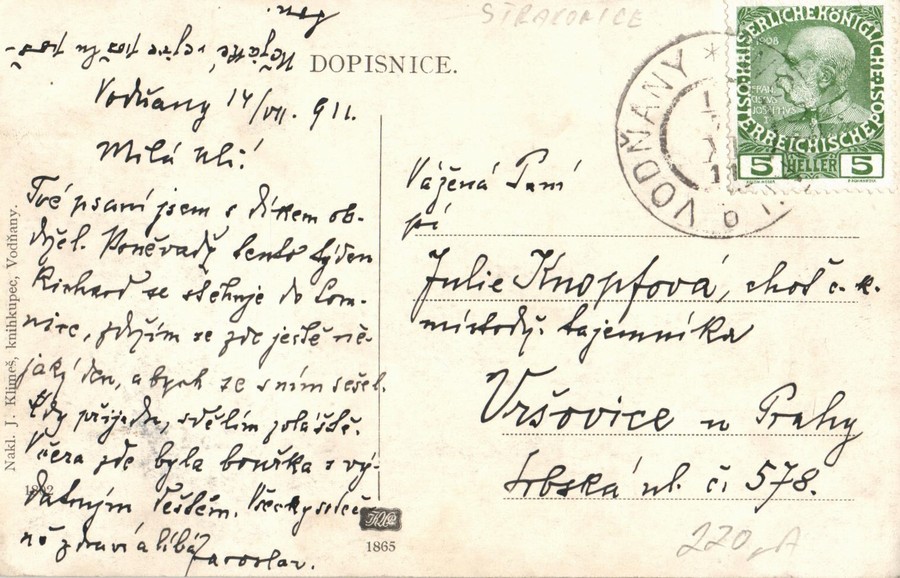 STRAKONICE
DOPISNICE.
Vodňany 14/VII. 911.
Milá
Tvé psaní jsem s díkem ob-
držel. Poněvadž tento týden
Richard se stěhuje do Lom-
nice, zdržím se zde ještě ně-
jaký den, abych se s ním sešel.
Kdy přijedu, sdělím zvláště.
Včera zde byla bouřka s vý-
datným deštěm. Všecky srdeč-
ně zdraví a líbá
Jaroslav.
Nakl. J. Klimeš, knihkupec, Vodňany.
1865
VODŇANY
KAISERLICHE KÖNIGLICHE
ÖSTERREICHISCHE POST
1908
5 HELLER 5
Vážená Paní
pí
Julie Knopfová, choť c. k.
místodrž. tajemníka
Vršovice u Prahy
Srbská ul. č. 578.
220,-